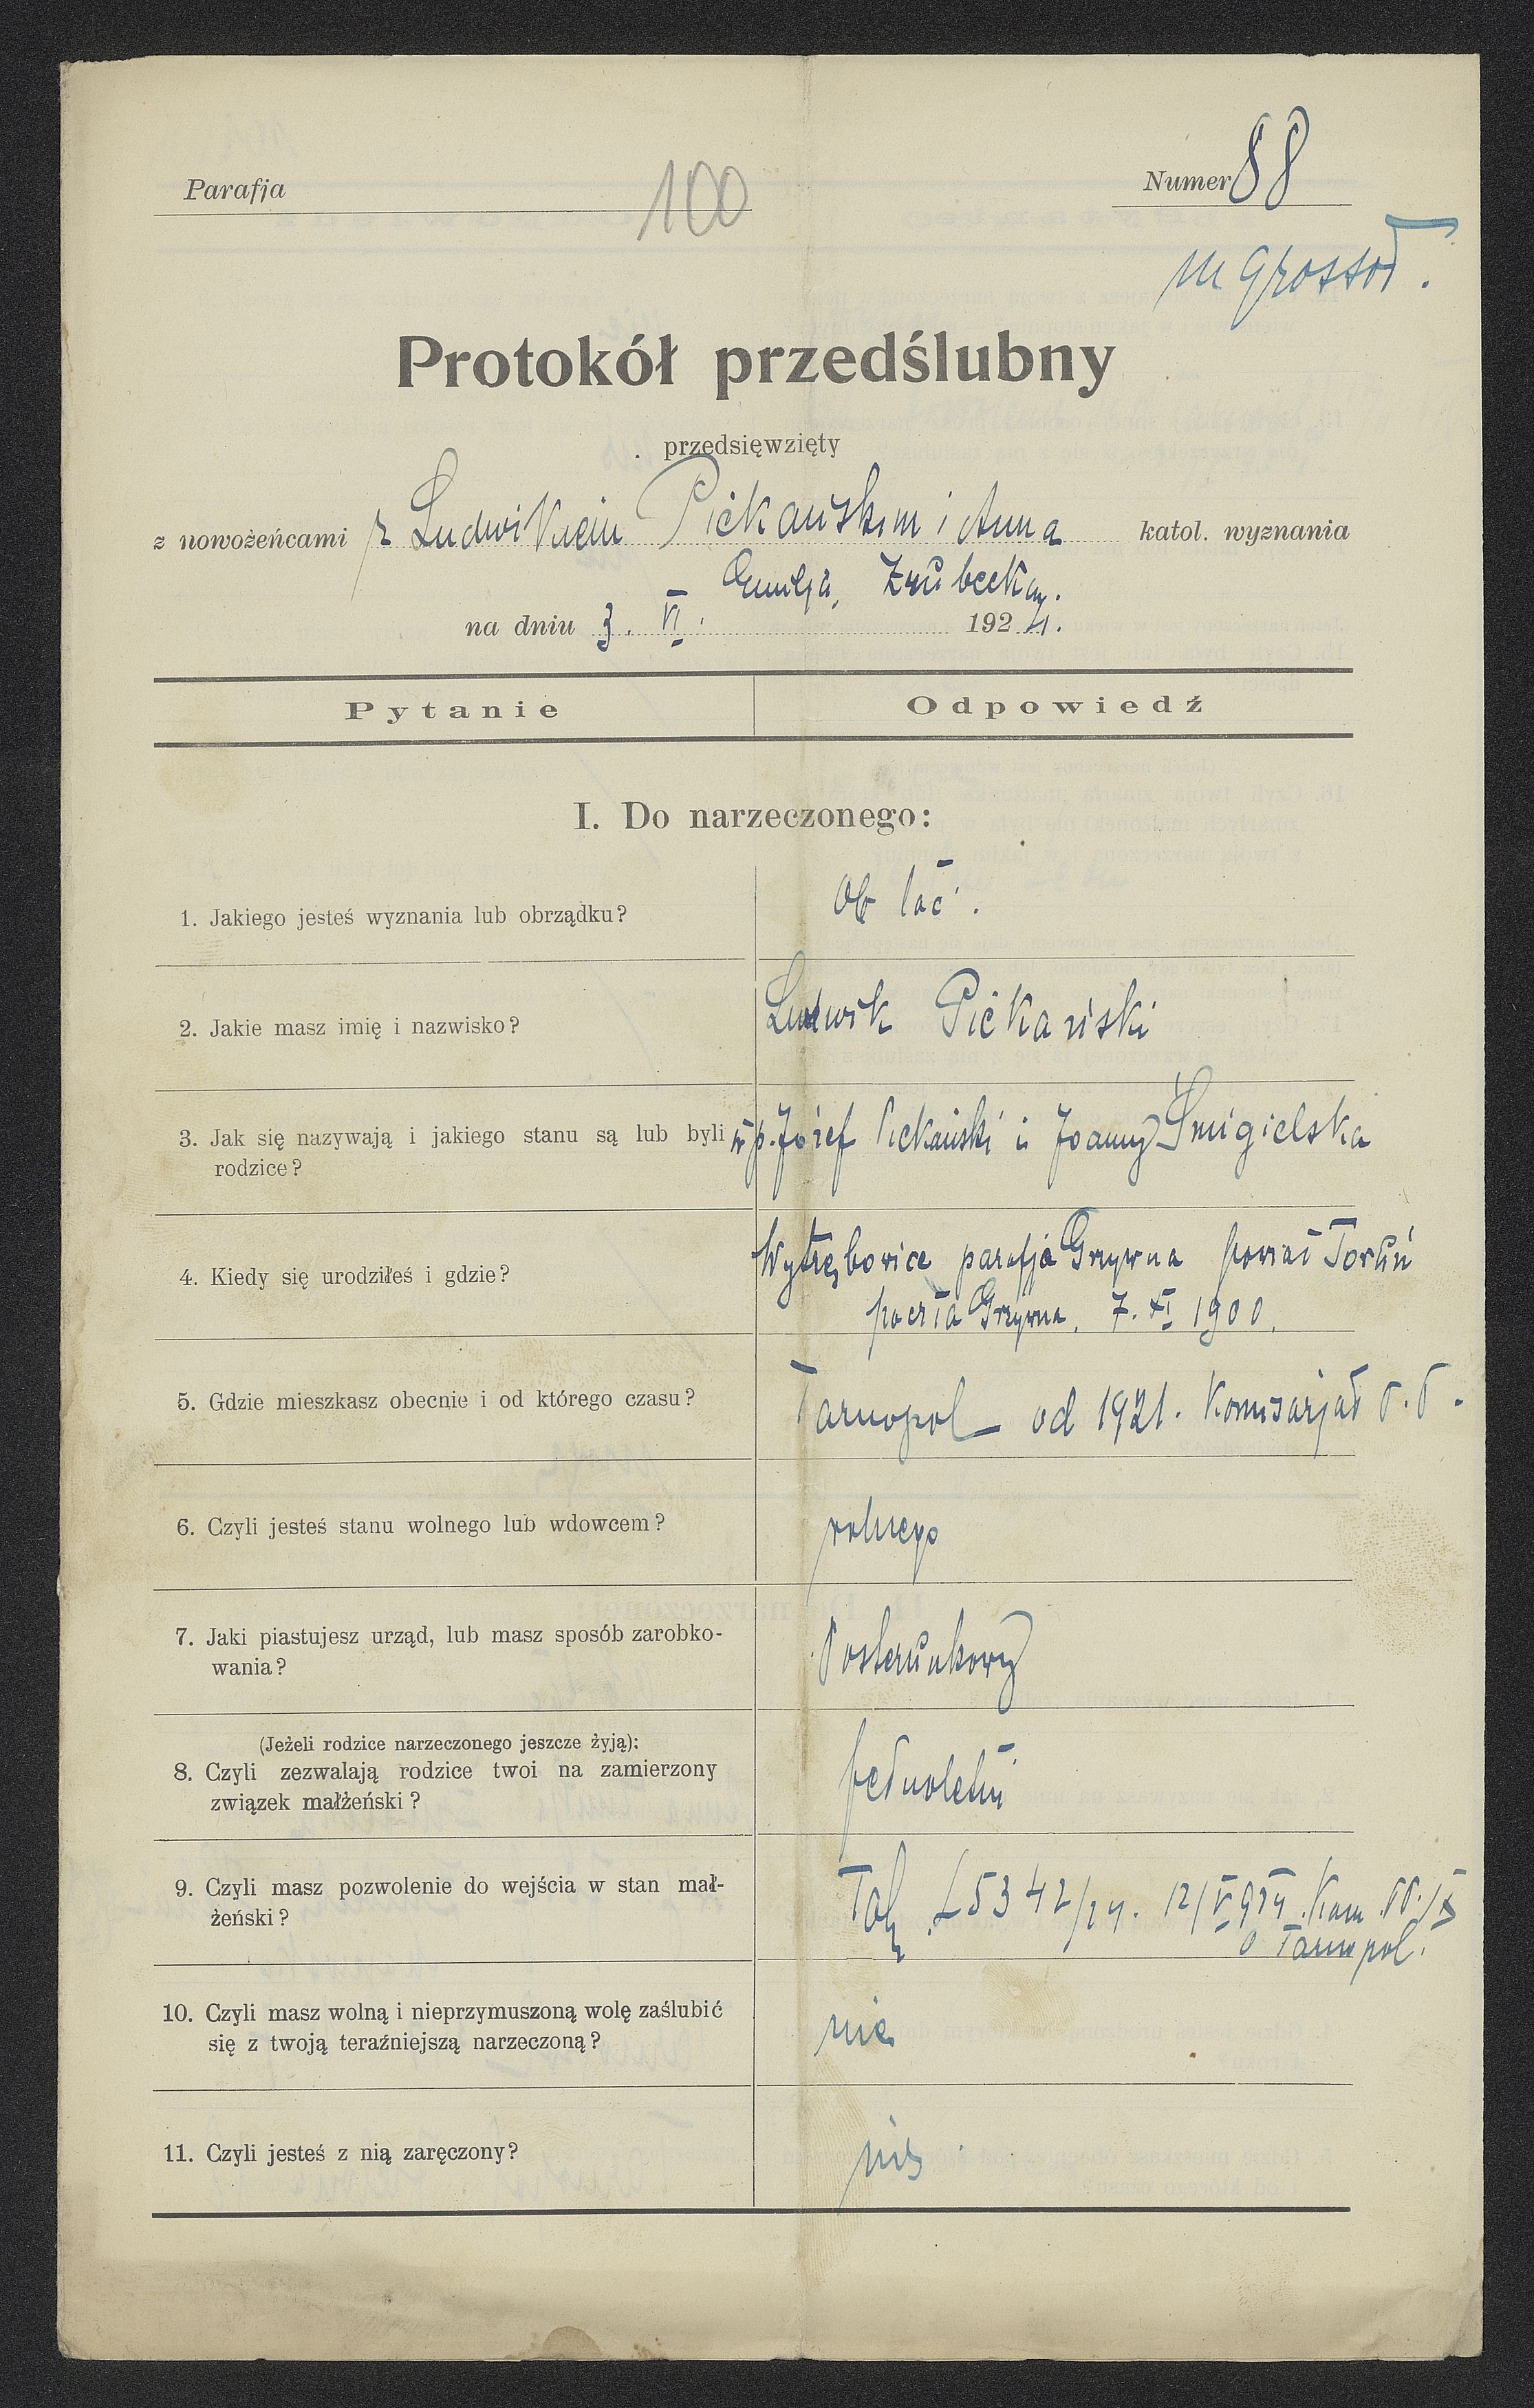 Parafja
100
Numer 88
Protokół przedślubny
przedsięwzięty
z nowożeńcami z Ludwikiem Piekańskim i Anna katol. wyznania
Emilją, Zrubecką.
na dniu 3. VI. 1924.
Pytanie Odpowiedź
I. Do narzeczonego:
1. Jakiego jesteś wyznania lub obrządku? Ob łać.
2. Jakie masz imię i nazwisko? Ludwik Piekański
3. Jak się nazywają i jakiego stanu są lub byli śp. Józef Piekański i Joanny Śmigielska
rodzice?
4. Kiedy się urodziłeś i gdzie? Wytrębowice parafja Grzywna powiat Toruń
poczta Grzywna. 7. XI 1900.
5. Gdzie mieszkasz obecnie i od którego czasu? Tarnopol od 1921. Komisarjat P. P.
6. Czyli jesteś stanu wolnego lub wdowcem? wolnego
7. Jaki piastujesz urząd, lub masz sposób zarobko- Posterunkowy
wania?
(Jeżeli rodzice narzeczonego jeszcze żyją):
8. Czyli zezwalają rodzice twoi na zamierzony
związek małżeński? pełnoletni
9. Czyli masz pozwolenie do wejścia w stan mał- Tak L 5342/24. 12/V 924. Kom. PP.
żeński? Tarnopol.
10. Czyli masz wolną i nieprzymuszoną wolę zaślubić
się z twoją teraźniejszą narzeczoną? nie
11. Czyli jesteś z nią zaręczony? nie